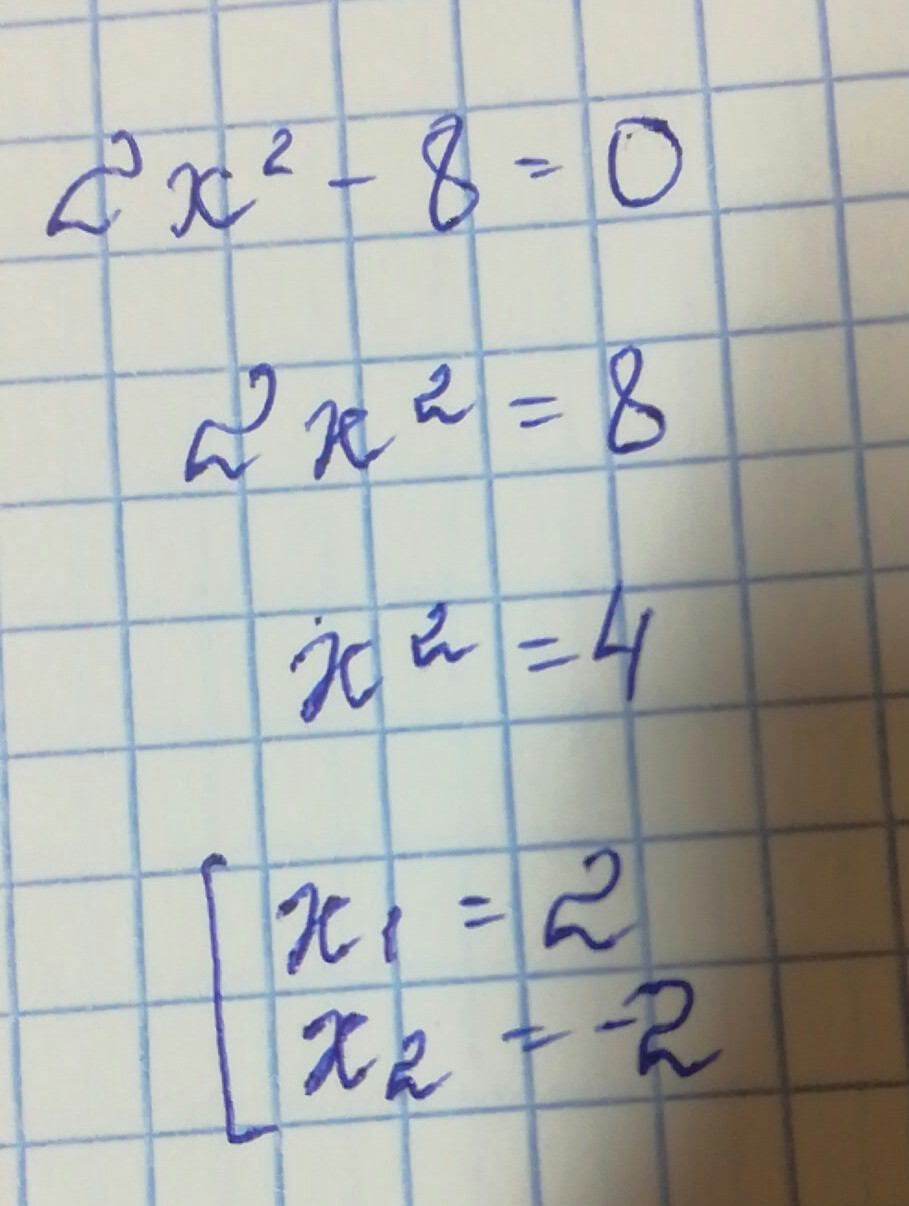 2x² - 8 = 0
2x² = 8
x² = 4
x₁ = 2
x₂ = -2